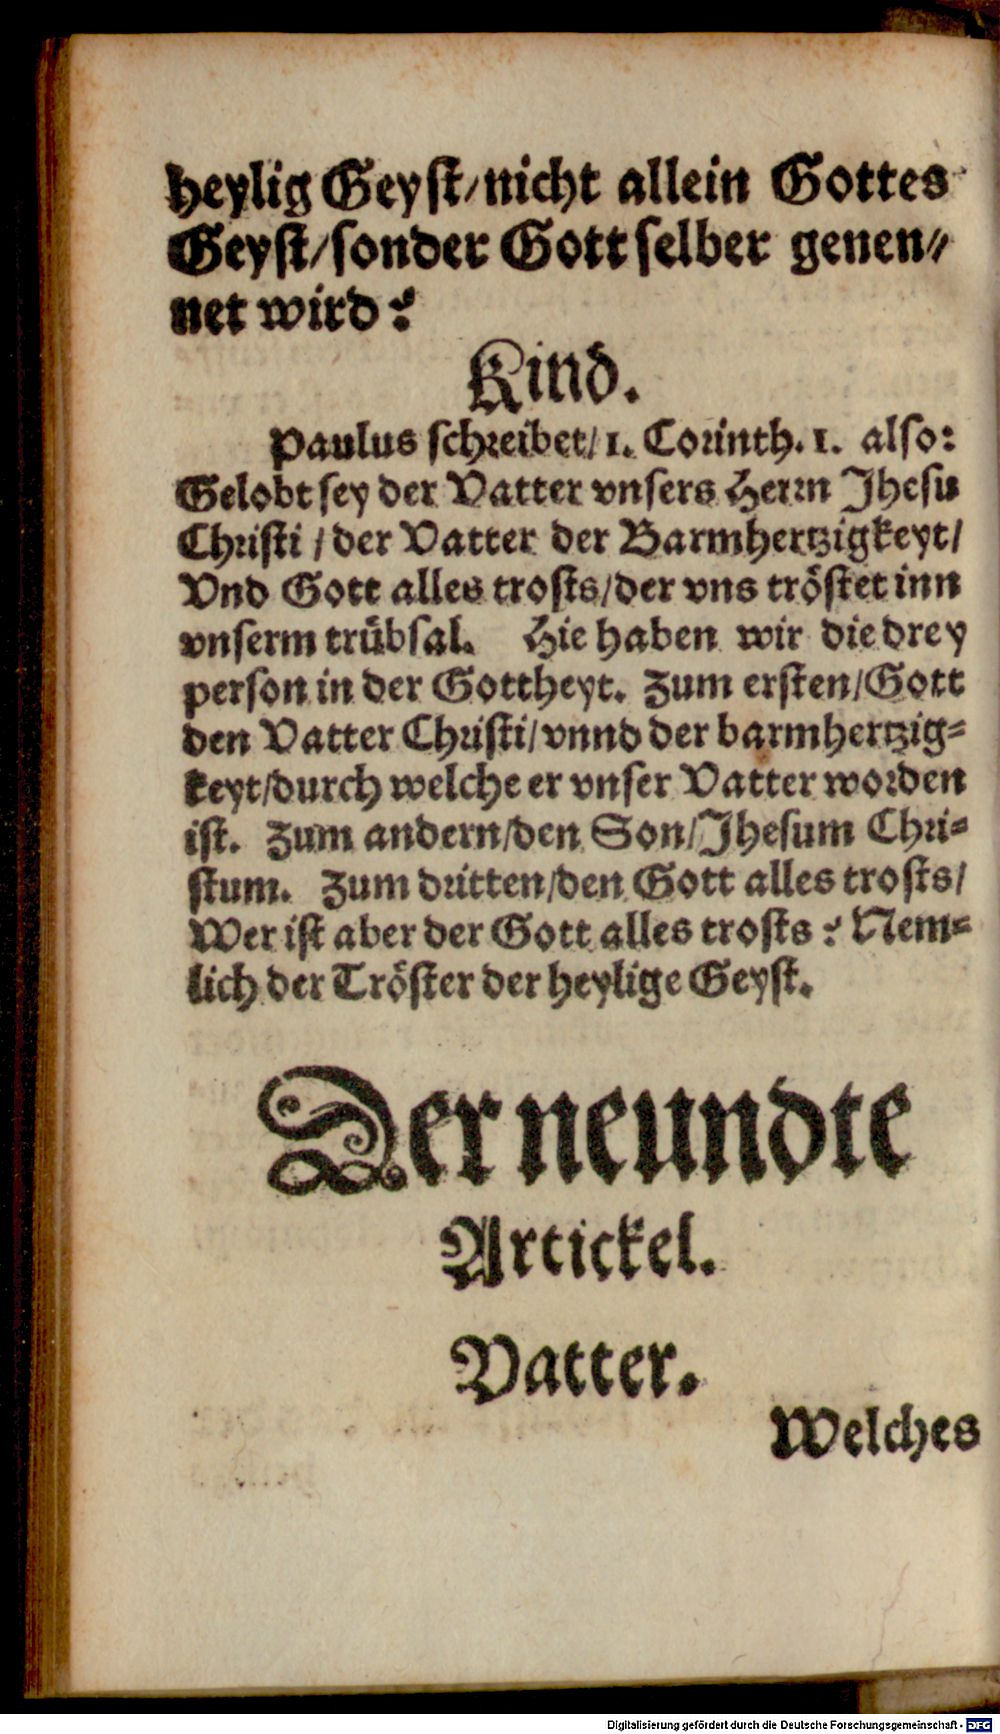 heylig Geyst/nicht allein Gottes
Geyst/sonder Gott selber genen⸗
net wird?
Kind.
Paulus schreibet/1. Corinth. 1. also:
Gelobt sey der Vatter vnsers Herrn Jhesu
Christi / der Vatter der Barmhertzigkeyt/
Vnd Gott alles trosts/der vns tröstet inn
vnserm trübsal. Hie haben wir die drey
person in der Gottheyt. Zum ersten/Gott
den Vatter Christi/vnnd der barmhertzig⸗
keyt/durch welche er vnser Vatter worden
ist. Zum andern/den Son/Jhesum Chri⸗
stum. Zum dritten/den Gott alles trosts/
Wer ist aber der Gott alles trosts? Nem⸗
lich der Tröster der heylige Geyst.
Der neundte
Artickel.
Vatter.
Welches
Digitalisierung gefördert durch die Deutsche Forschungsgemeinschaft - DFG